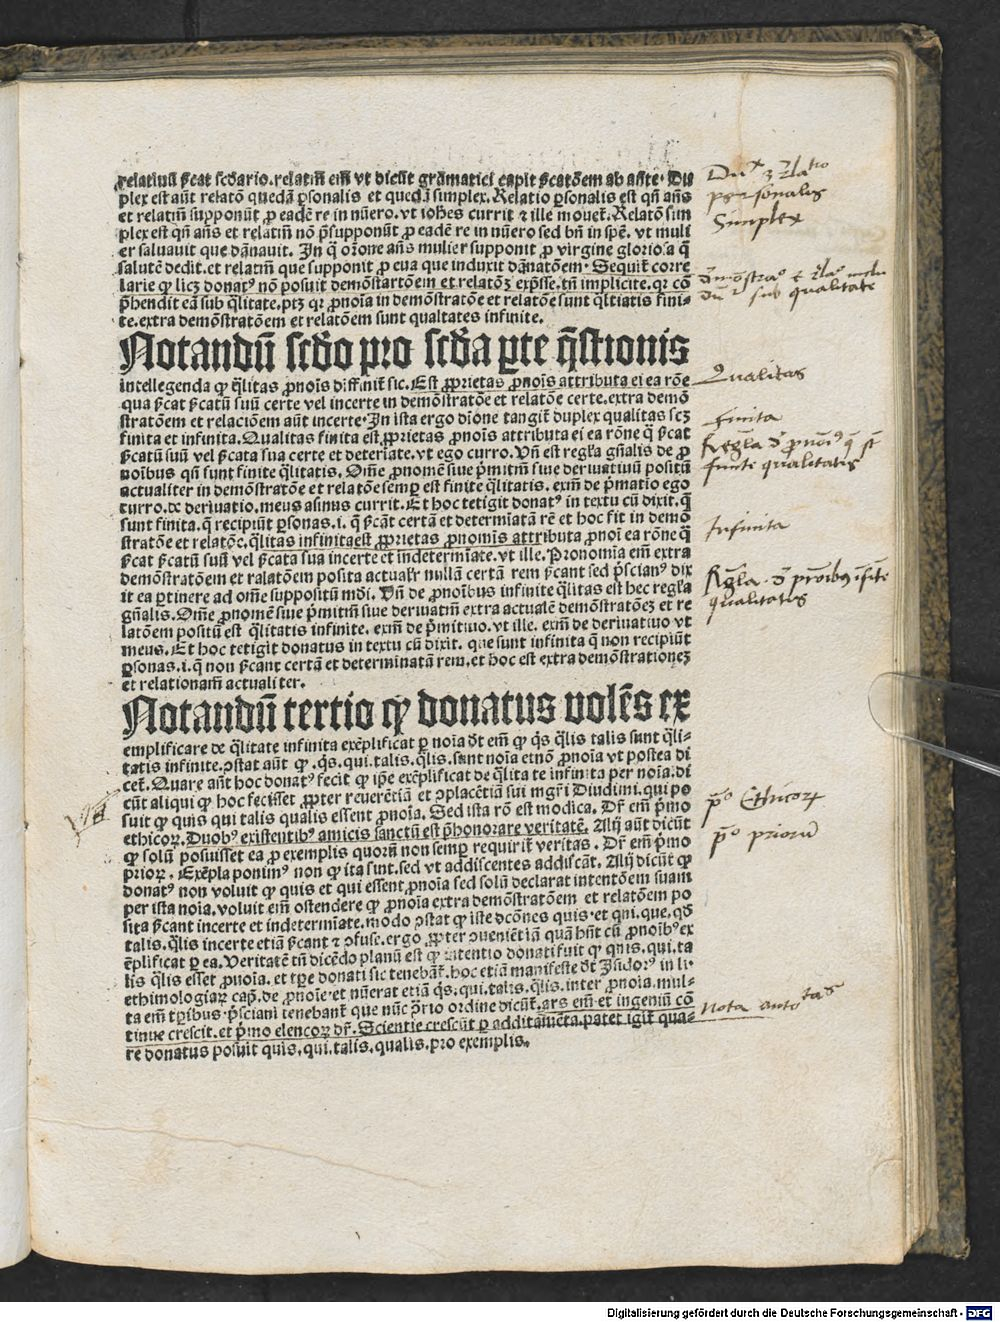 relatiuũ ſcat ſcd̃ario. relatiũ em̃ vt dicũt grãmatici capit ſcatõem ab ãñte. Du
plex est aũt relatõ quedã ꝑſonalis et quedã ſimplex. Relatio ꝑſonalis est qñ añs
et relatiũ ſupponũt ꝓ eadẽ re in nũero. vt iohẽs currit ⁊ ille mouet᷑. Relatõ ſim
plex est qñ añs et relatiũ nõ p̃ſupponũt ꝓ eadẽ re in nũero ſed bñ in ſpẽ. vt muli
er ſaluauit que dãnauit. In q̃ orõne añs mulier ſupponit ꝓ virgine glorioſa q̃
ſalutẽ dedit. et relatiũ que ſupponit ꝓ eua que induxit dãnatõem. Sequit᷑ corre
larie ꝙ licꝫ donatꝰ nõ poſuit demõſtratõem et relatõꝫ exp̃ſſe. tñ implicite. qꝛ cõ
p̃hendit eã ſub q̃litate. ptꝫ qꝛ ꝓnoĩa in demõſtratõe et relatõe ſunt q̃litatis fini-
te. extra demõſtratõem et relatõem ſunt qualitates infinite.
Notandũ ſcd̃o pro ſcd̃a ꝑte q̃ſtionis
intellegenda ꝙ q̃litas ꝓnoĩs diffinit᷑ ſic. Est ꝓprietas ꝓnoĩs attributa ei ea rõe
qua ſcat ſcatũ ſuũ certe vel incerte in demõſtratõe et relatõe certe. extra demõ
ſtratõem et relaciõem aũt incerte. In ista ergo diõne tangit᷑ duplex qualitas ſcꝫ
finita et infinita. Qualitas finita est ꝓprietas ꝓnoĩs attributa ei ea rõne q̃ ſcat
ſcatũ ſuũ vel ſcata ſua certe et determĩate. vt ego curro. Vñ est regl̃a gñalis de ꝓ
noĩbus qñ ſunt finite q̃litatis. Om̃e ꝓnomẽ ſiue p̃mitiũ ſiue deriuatiuũ poſitũ
actualiter in demõſtratõe et relatõe ſemꝑ est finite q̃litatis. exm̃ de p̃matio ego
curro. de deriuatio. meus aſinus currit. Et hoc tetigit donatꝰ in textu cũ dixit. q̃
ſunt finita. q̃ recipiũt ꝑſonas. i. q̃ ſcãt certã et determĩatã rẽ et hoc fit in demõ
ſtratõe et relatõe. q̃litas infinita est ꝓprietas ꝓnomis attributa ꝓnoĩ ea rõne q̃
ſcat ſcatũ ſuũ vel ſcata ſua incerte et indetermĩate. vt ille. Pronomia em̃ extra
demõſtratõem et ralatõem poſita actualr̃ nullã certã rem ſcant ſed p̃ſcianꝰ dix
it ea ꝑtinere ad om̃e ſuppoſitũ md̃i. Vñ de ꝓnoĩbus infinite q̃litas est hec regl̃a
gñalis. Om̃e ꝓnomẽ ſiue p̃mitiũ ſiue deriuatiũ extra actualẽ demõſtratõeꝫ et re
latõem poſitũ est q̃litatis infinite. exm̃ de p̃mitiuo. vt ille. exm̃ de deriuatiuo vt
meus. Et hoc tetigit donatus in textu cũ dixit. que ſunt infinita q̃ non recipiũt
ꝑſonas. i. q̃ non ſcant certã et determinatã rem. et hoc est extra demõſtrationeꝫ
et relationẽ actualiter.
Notandũ tertio ꝙ donatus volẽs ex
emplificare de q̃litate infinita exẽplificat ꝑ noĩa dt̃ em̃ ꝙ q̃s q̃lis talis ſunt q̃li-
tatis infinite. ꝯſtat aũt ꝙ q̃s. qui. talis. q̃lis. ſunt noĩa et nõ ꝓnoĩa vt poſtea di
cet᷑. Quare aũt hoc donatꝰ fecit ꝙ ip̃e exẽplificat de q̃litate infinita per noĩa. di
cũt aliqui ꝙ hoc feciſſet ꝓpter reuerẽtiã et ꝯplacẽtiã ſui mgr̃i Diudimi. qui po
ſuit ꝙ quis qui talis qualis eſſent ꝓnoĩa. Sed iſta rõ est modica. Dr̃ em̃ p̃mo
ethicoꝝ. Duobꝰ exiſtentibꝰ amicis ſanctũ est p̃honorare veritatẽ. Alij aũt dicũt
ꝙ ſolũ poſuiſſet ea ꝓ exemplis quorũ non ſemꝑ requirit᷑ veritas. Dr̃ em̃ p̃mo
prioꝝ. Exẽpla ponimꝰ non ꝙ ita ſint. ſed vt addiſcentes addiſcãt. Alij dicũt ꝙ
donatꝰ non voluit ꝙ quis et qui eſſent ꝓnoĩa ſed ſolũ declarat intentõem ſuam
per iſta noĩa. voluit em̃ oſtendere ꝙ ꝓnoĩa extra demõſtratõem et relatõem po
ſita ſcant incerte et indetermĩate. modo ꝯſtat ꝙ iſte dcõnes quis. et qui. que. qd̃
talis. q̃lis incerte etiã ſcant ⁊ ꝯfuſe. ergo ꝓpter ꝯueniẽtiã quã hñt cũ ꝓnoĩbꝰ ex
ẽplificat ꝑ ea. Veritatẽ tñ dicẽdo planũ est ꝙ intentio donati fuit ꝙ quis. qui. ta
lis q̃lis eſſet ꝓnoĩa. et tꝑe donati ſic tenebant᷑. hoc etiã manifeſte dt̃ Iſidorꝰ in li.
ethimologiaꝝ cap̃. de ꝓnoĩe. et nũerat etiã q̃s. qui. talis. q̃lis. inter ꝓnoĩa. mul-
ta em̃ tꝑibus p̃ſciani tenebant᷑ que nũc ꝑrio ordine dicũt᷑. ars em̃ et ingeniũ cõ
tinue creſcit. et p̃mo elencoꝝ dr̃. Scientie creſcũt ꝑ additamẽta. patet igit᷑ qua-
re donatus poſuit quis. qui. talis. qualis. pro exemplis.
perſonalis
Simplex
ſub qualitate
Qualitas
finita
finite qualitatis
Infinita
qualitatis
p̃º Ethicoꝝ
p̃º prioꝝ
Nota
Digitalisierung gefördert durch die Deutsche Forschungsgemeinschaft - DFG